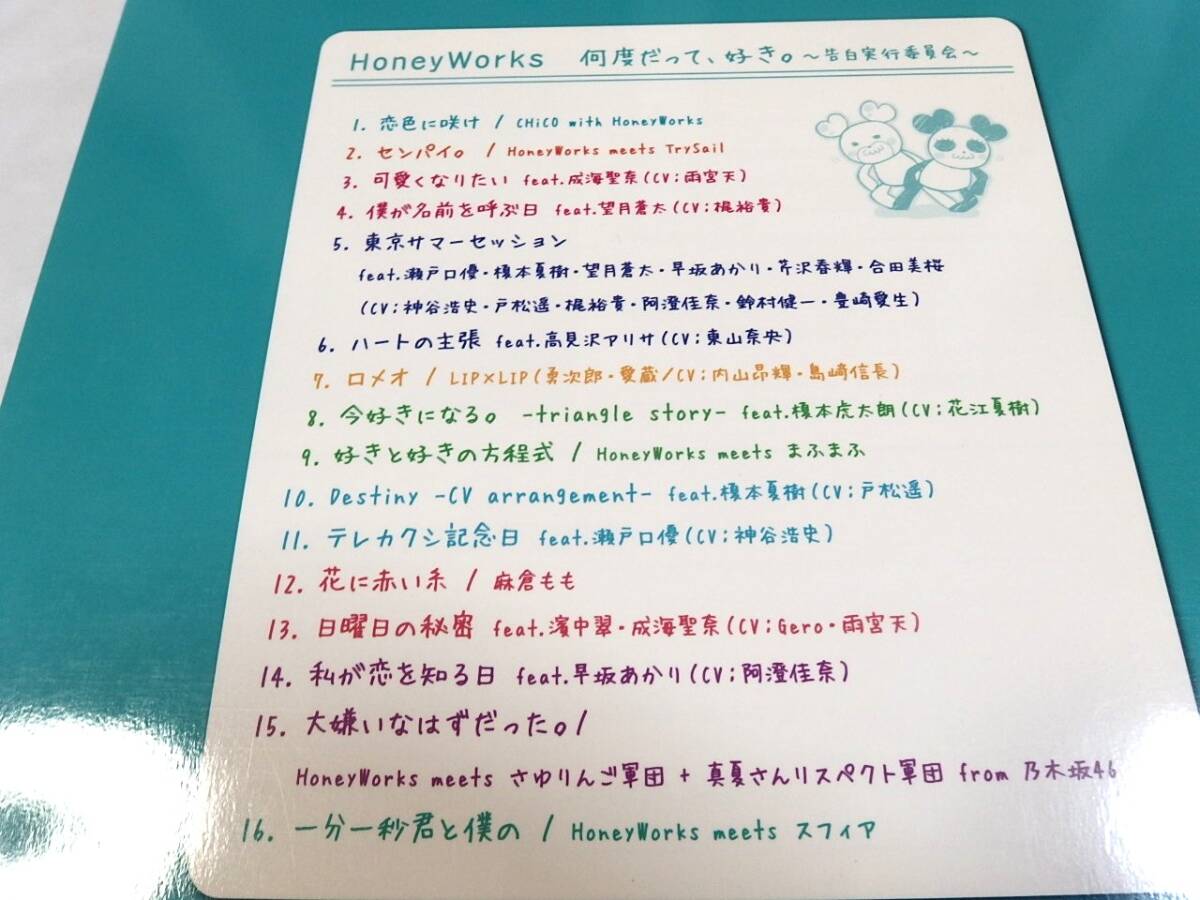 HoneyWorks 何度だって、好き。～告白実行委員会～
1. 恋色に咲け / CHiCO with HoneyWorks
2. センパイ。 / HoneyWorks meets TrySail
3. 可愛くなりたい feat.成海聖奈(CV:雨宮天)
4. 僕が名前を呼ぶ日 feat.望月蒼太(CV:梶裕貴)
5. 東京サマーセッション
feat.瀬戸口優・榎本夏樹・望月蒼太・早坂あかり・芹沢春輝・合田美桜
(CV:神谷浩史・戸松遥・梶裕貴・阿澄佳奈・鈴村健一・豊崎愛生)
6. ハートの主張 feat.高見沢アリサ(CV:東山奈央)
7. ロメオ / LIP×LIP(勇次郎・愛蔵/CV:内山昂輝・島崎信長)
8. 今好きになる。 -triangle story- feat.榎本虎太朗(CV:花江夏樹)
9. 好きと好きの方程式 / HoneyWorks meets まふまふ
10. Destiny -CV arrangement- feat.榎本夏樹(CV:戸松遥)
11. テレカクシ記念日 feat.瀬戸口優(CV:神谷浩史)
12. 花に赤い糸 / 麻倉もも
13. 日曜日の秘密 feat.濱中翠・成海聖奈(CV:Gero・雨宮天)
14. 私が恋を知る日 feat.早坂あかり(CV:阿澄佳奈)
15. 大嫌いなはずだった。/
HoneyWorks meets さゆりんご軍団 + 真夏さんリスペクト軍団 from 乃木坂46
16. 一分一秒君と僕の / HoneyWorks meets スフィア